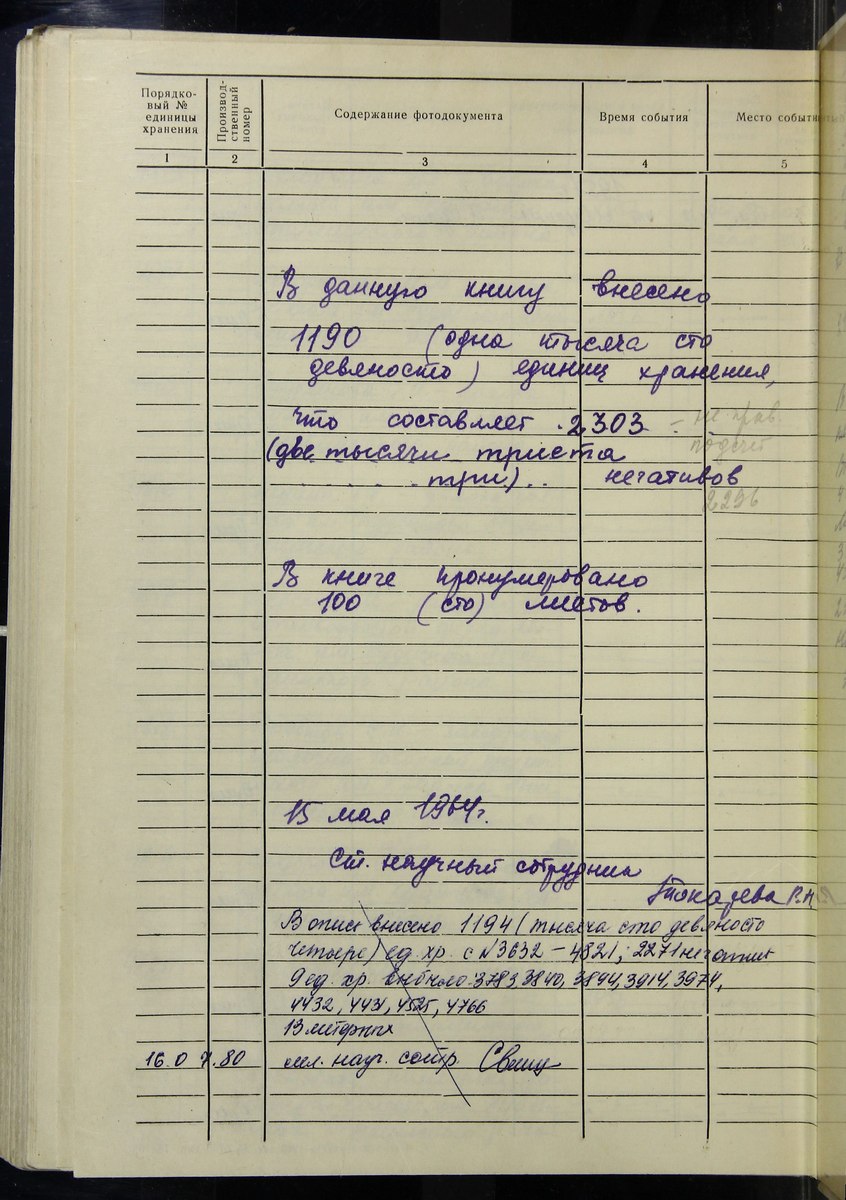 Порядко-
вый №
единицы
хранения
Производ-
ственный
номер
Содержание фотодокумента
Время события
Место события
1
2
3
4
5
В данную книгу внесено
1190 (одна тысяча сто
девяносто) единиц хранения,
что составляет 2303 - не прав.
подсчет
(две тысячи триста
три) негативов
2296
В книге пронумеровано
100 (сто) листов.
15 мая 1964г.
Ст. научный сотрудник
Токарева В.Н.
В опись внесено 1194 (тысяча сто девяносто
четыре) ед. хр. с №3632 - 4821; 2271 негатив
9 ед. хр. выбыло: 3783, 3840, 3894, 3914, 3974,
4432, 4431, 4525, 4766
13 литерных
16.07.80 мл. науч. сотр.